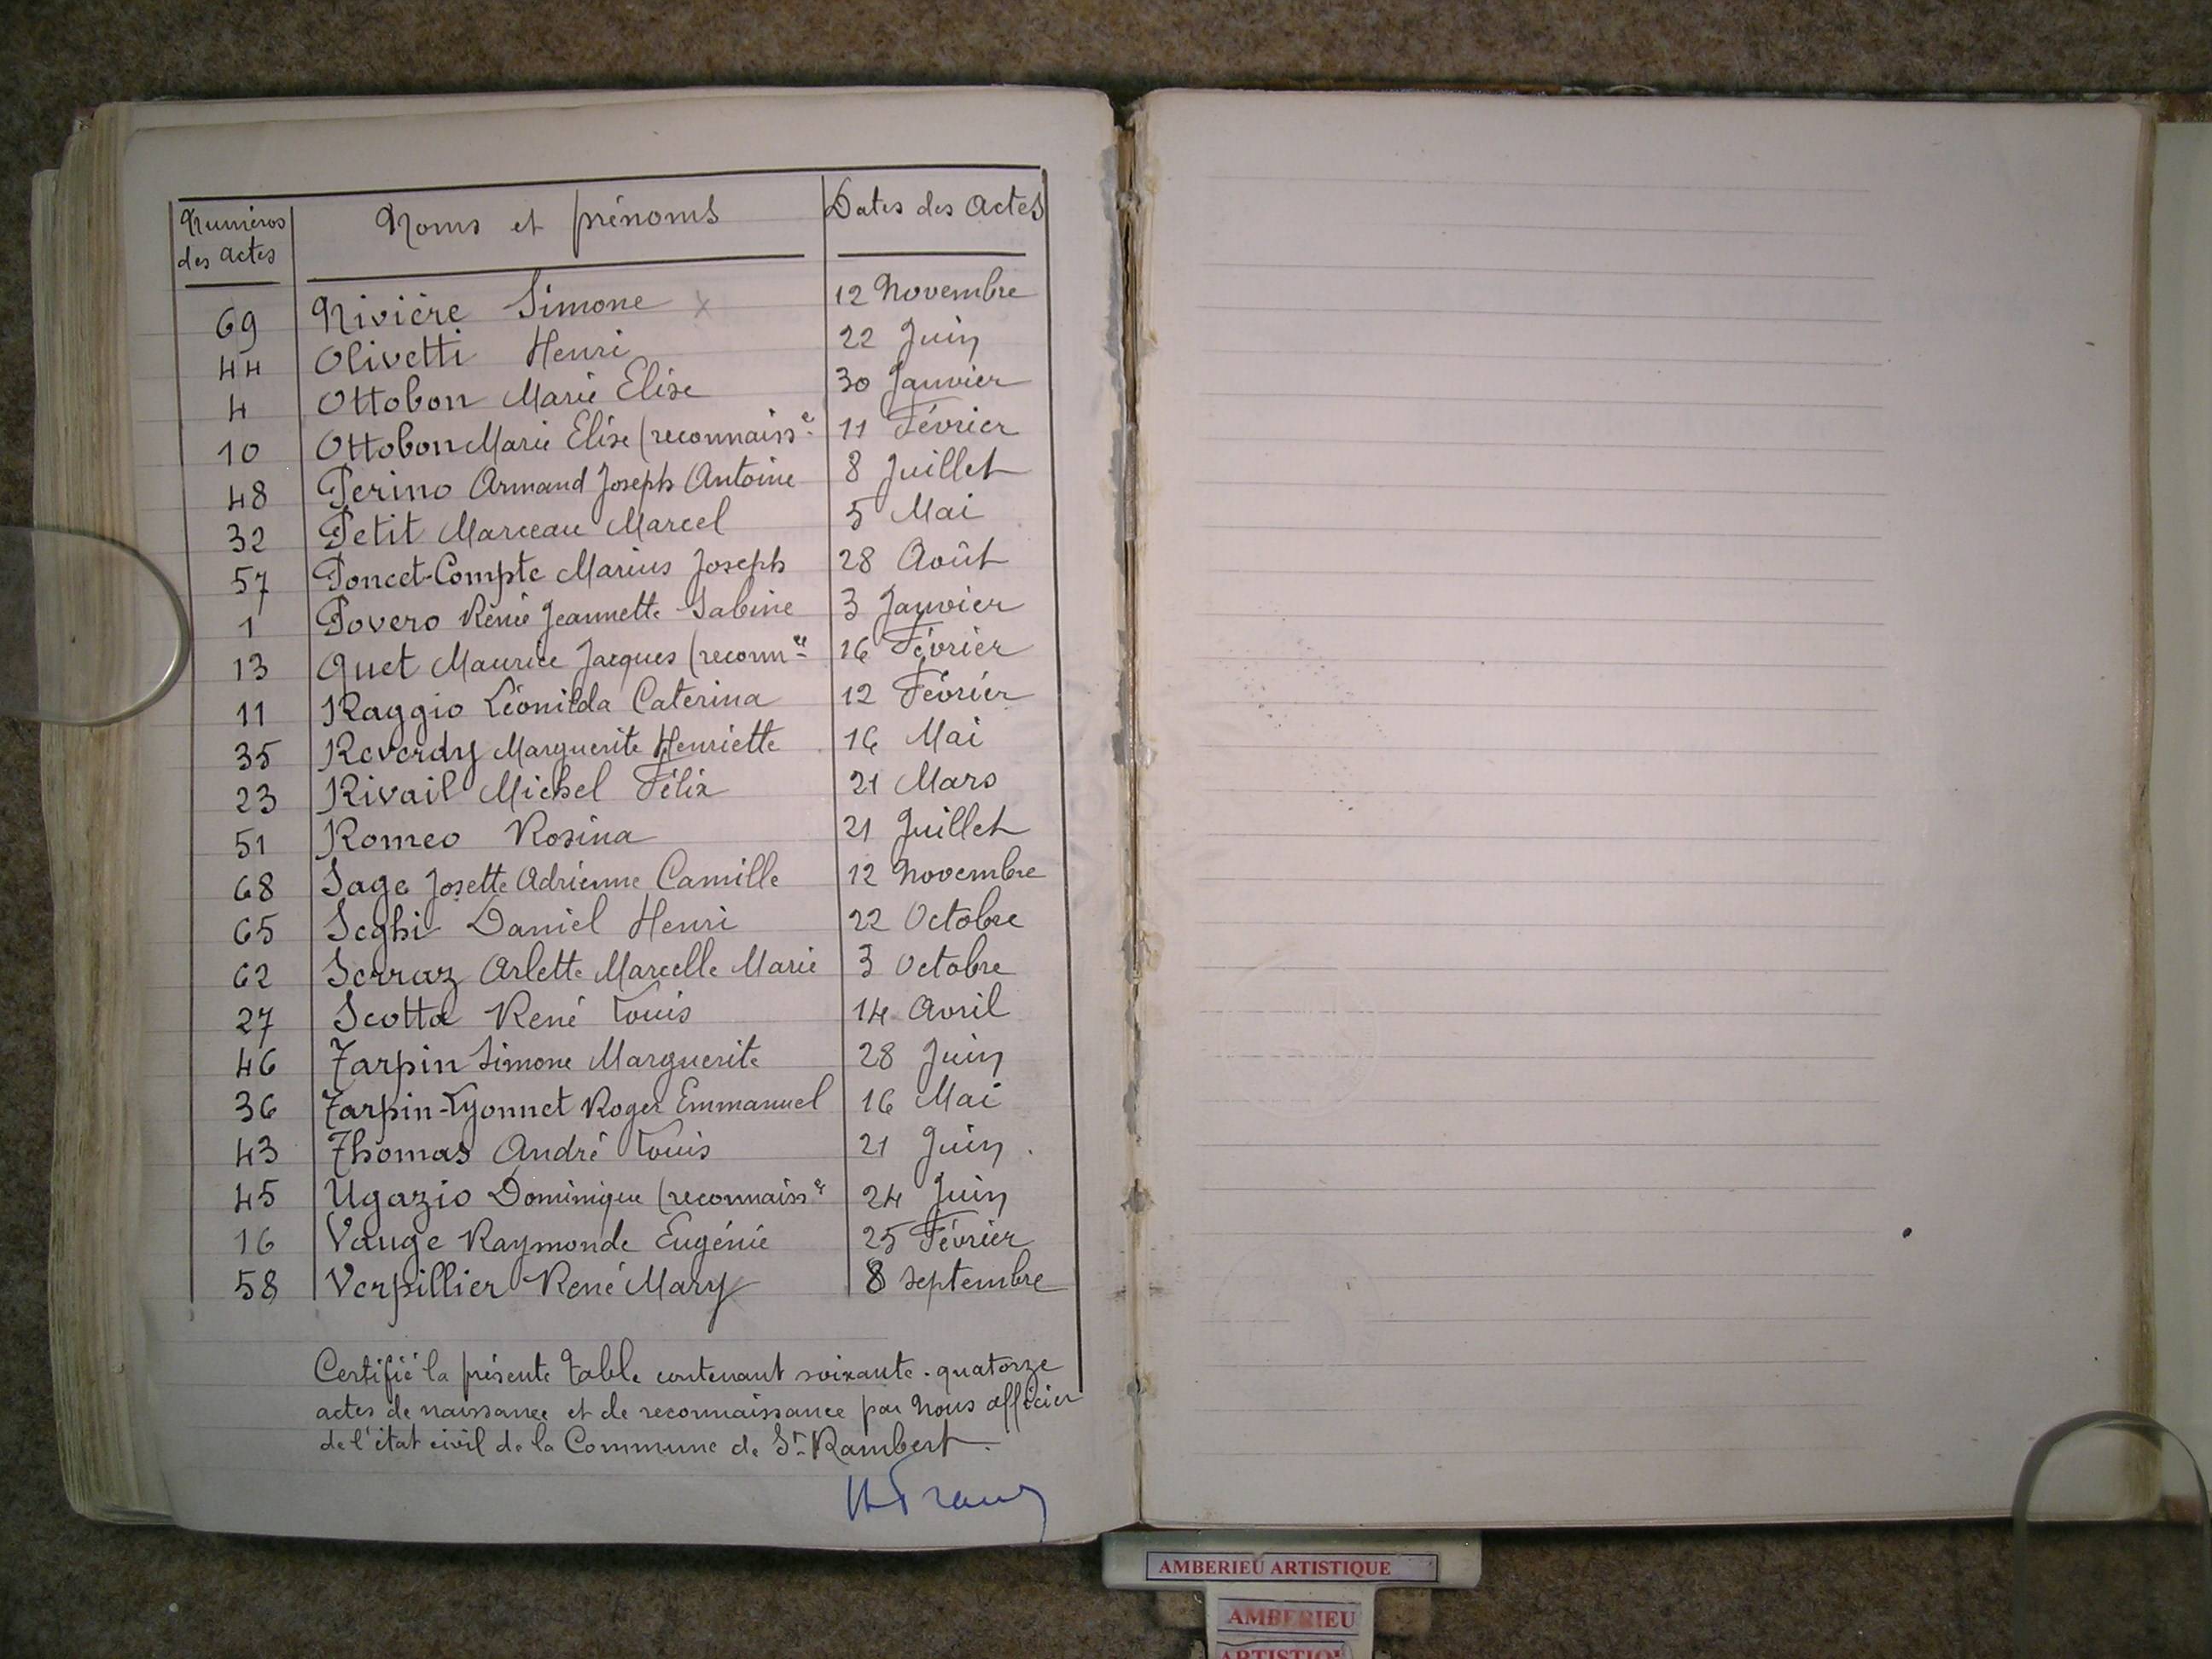 Numéros des actes | Noms et prénoms | Dates des actes
69 Nivière Simone x 12 Novembre
44 Olivetti Henri 22 Juin
4 Ottobon Marie Elise 30 Janvier
10 Ottobon Marie Elise (reconnaiss.ce 11 Février
48 Perino Armand Joseph Antoine 8 Juillet
32 Petit Marceau Marcel 5 Mai
57 Poncet-Compte Marius Joseph 28 Août
1 Povero Renée Jeannette Sabine 3 Janvier
13 Quet Maurice Jacques (reconn.ce 16 Février
11 Raggio Léonilda Caterina 12 Février
35 Reverdy Marguerite Henriette 16 Mai
23 Rivail Michel Félix 21 Mars
51 Romeo Rosina 21 Juillet
68 Sage Josette Adrienne Camille 12 Novembre
65 Seghi Daniel Henri 22 Octobre
62 Serraz Arlette Marcelle Marie 3 Octobre
27 Scotta René Louis 14 Avril
46 Tarpin Simone Marguerite 28 Juin
36 Tarpin-Lyonnet Roger Emmanuel 16 Mai
43 Thomas André Louis 21 Juin.
45 Ugazio Dominique (reconnaiss.ce 24 Juin
16 Vauge Raymonde Eugénie 25 Février
58 Verpillier René Mary 8 Septembre
Certifié la présente table contenant soixante-quatorze
actes de naissance et de reconnaissance par Nous officier
de l'état civil de la Commune de St-Rambert.
AMBERIEU ARTISTIQUE
AMBERIEU